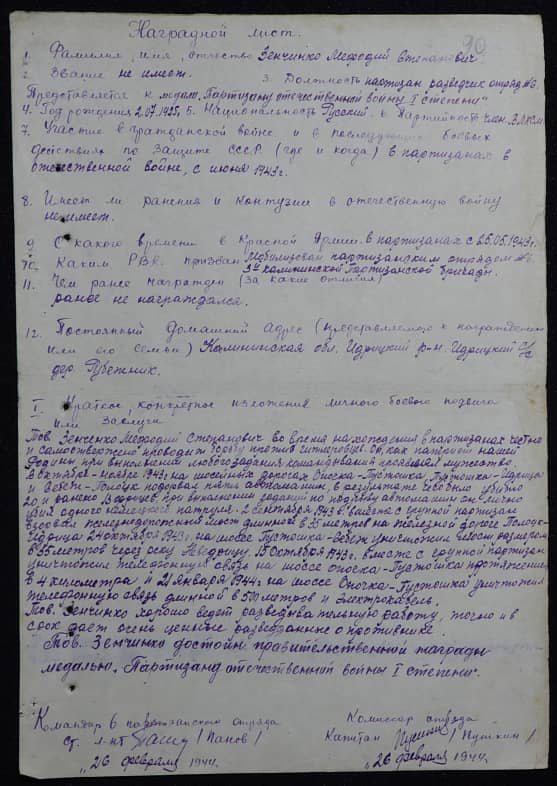 90
Наградной лист.
1. Фамилия, имя, отчество Зенчинко Мефодий Степанович.
2. Звание не имеет. 3. Должность партизан разведчик отряд №6.
Представляется к медали „Партизану отечественной войны I степени"
4. Год рождения 2.07.1925, 5. Национальность Русский. 6 Партийность член ВЛКСМ.
7. Участие в гражданской войне и в последующих боевых
действиях по защите СССР (где и когда) в партизанах в
отечественной войне, с июня 1943г.
8. Имеет ли ранения и контузии в отечественную войну
не имеет.
9. С какого времени в Красной Армии. в партизанах с 25.05.1943г.
10. Каким РВК призван Мобилизован партизанским отрядом №6.
3й Калининской Партизанской бригады.
11. Чем ранее награжден (за какие отличия)
ранее не награждался.
12. Постоянный домашний адрес (представляемого к награждению
или его семьи) Калининская обл. Идрицкий р-н. Идрицкий с/с
дер. Рубежник.
I Краткое, конкретное изложения личного боевого подвига
или заслуги
Тов. Зенченко Мефодий Степанович во время нахождения в партизанах честно
и самоотверженно проводит борьбу против гитлеровцев. Он, как патриот нашей
Родины, при выполнении любого задания командования проявлял мужество.
В октябре-ноябре 1943г. на шоссейных дорогах Опочка-Пустошка, Пустошка-Идрица
и подорвал автомашин, в результате чего было убито
20 и ранено 8 фрицев, при выполнении заданий по подрыву автомашин он лично
убил одного немецкого патруля. 2 сентября 1943г. вместе с группой партизан
взорвал железнодорожный мост длинной в 35 метров на железной дороге Полоцк-
Идрица 24 октября 1943г. на шоссе Пустошка- уничтожил размером
в 35 метров через реку 15 октября 1943г. вместе с группой партизан
уничтожил телефонную связь на шоссе Опочка-Пустошка протяжением
в 4 километра, и 21 января 1944г. на шоссе Опочка-Пустошка уничтожил
телефонную связь длинной в 500 метров и электрокабель.
Тов. Зенчинко хорошо ведет разведывательную работу, точно и в
срок дает очень ценные разведданные о противнике.
Тов. Зенчинко достойн правительственной награды
медалью „Партизану отечественной войны I степени".
Командир 6 партизанского отряда
Ст. л-нт /Панов/
„26 февраля 1944г.
Комиссар отряда
Капитан /Пушкин/
„26 февраля 1944г.